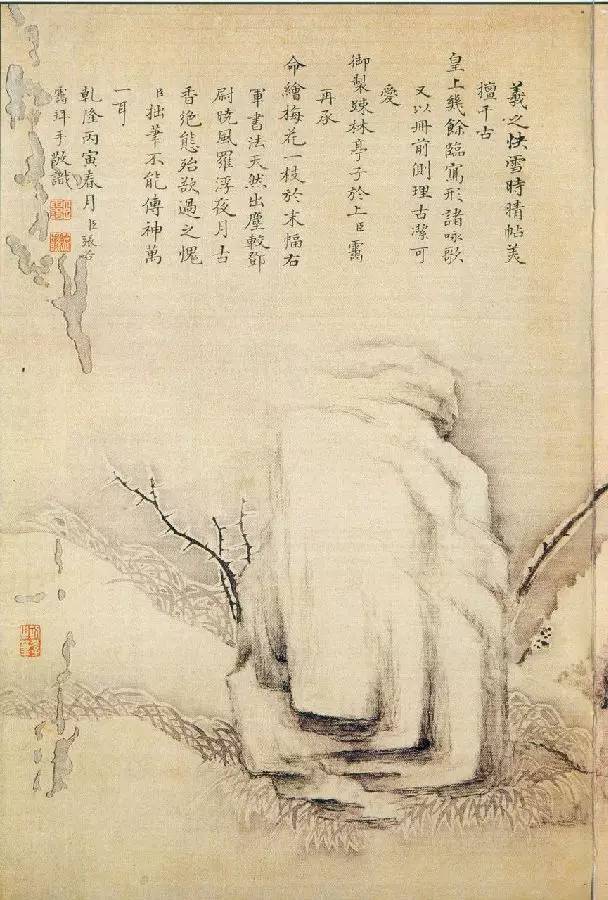 羲之快雪時晴帖美
擅千古
皇上幾餘臨寫形諸咏歌
又以冊前側理古潔可
愛
御製疎林亭子於上臣靄
再承
命繪梅花一枝於末幅右
軍書法天然出塵較鄧
尉曉風羅浮夜月古
香絶態殆欲過之愧
臣拙筆不能傳神萬
一耳
乾隆丙寅春月臣張若
靄拜手敬識